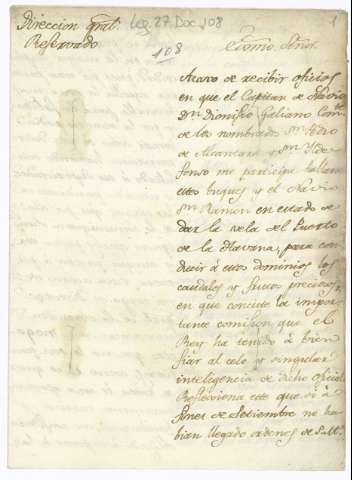 Direccion Gral. Leg. 27. Doc 108
Reservado
108
1
Exmo. Señor.
Acavo de recibir oficios
en que el Capitan de Navio
Dn. Dionisio Galiano Comte.
de los nombrados Sn. Pedro
de Alcantara y Sn. Ylde
fonso me participa hallarse
estos buques y el Navio
Sn. Ramon en estado de
dar la vela del Puerto
de la Havana, para con
ducir á estos dominios los
caudales y frutos preciosos,
en que consiste la impor
tante comision que el
Rey ha tenido á bien
fiar al celo y singular
inteligencia de dicho oficial.
Reflexiona este que si á
fines de Setiembre no ha
bian llegado ordenes de S.M.